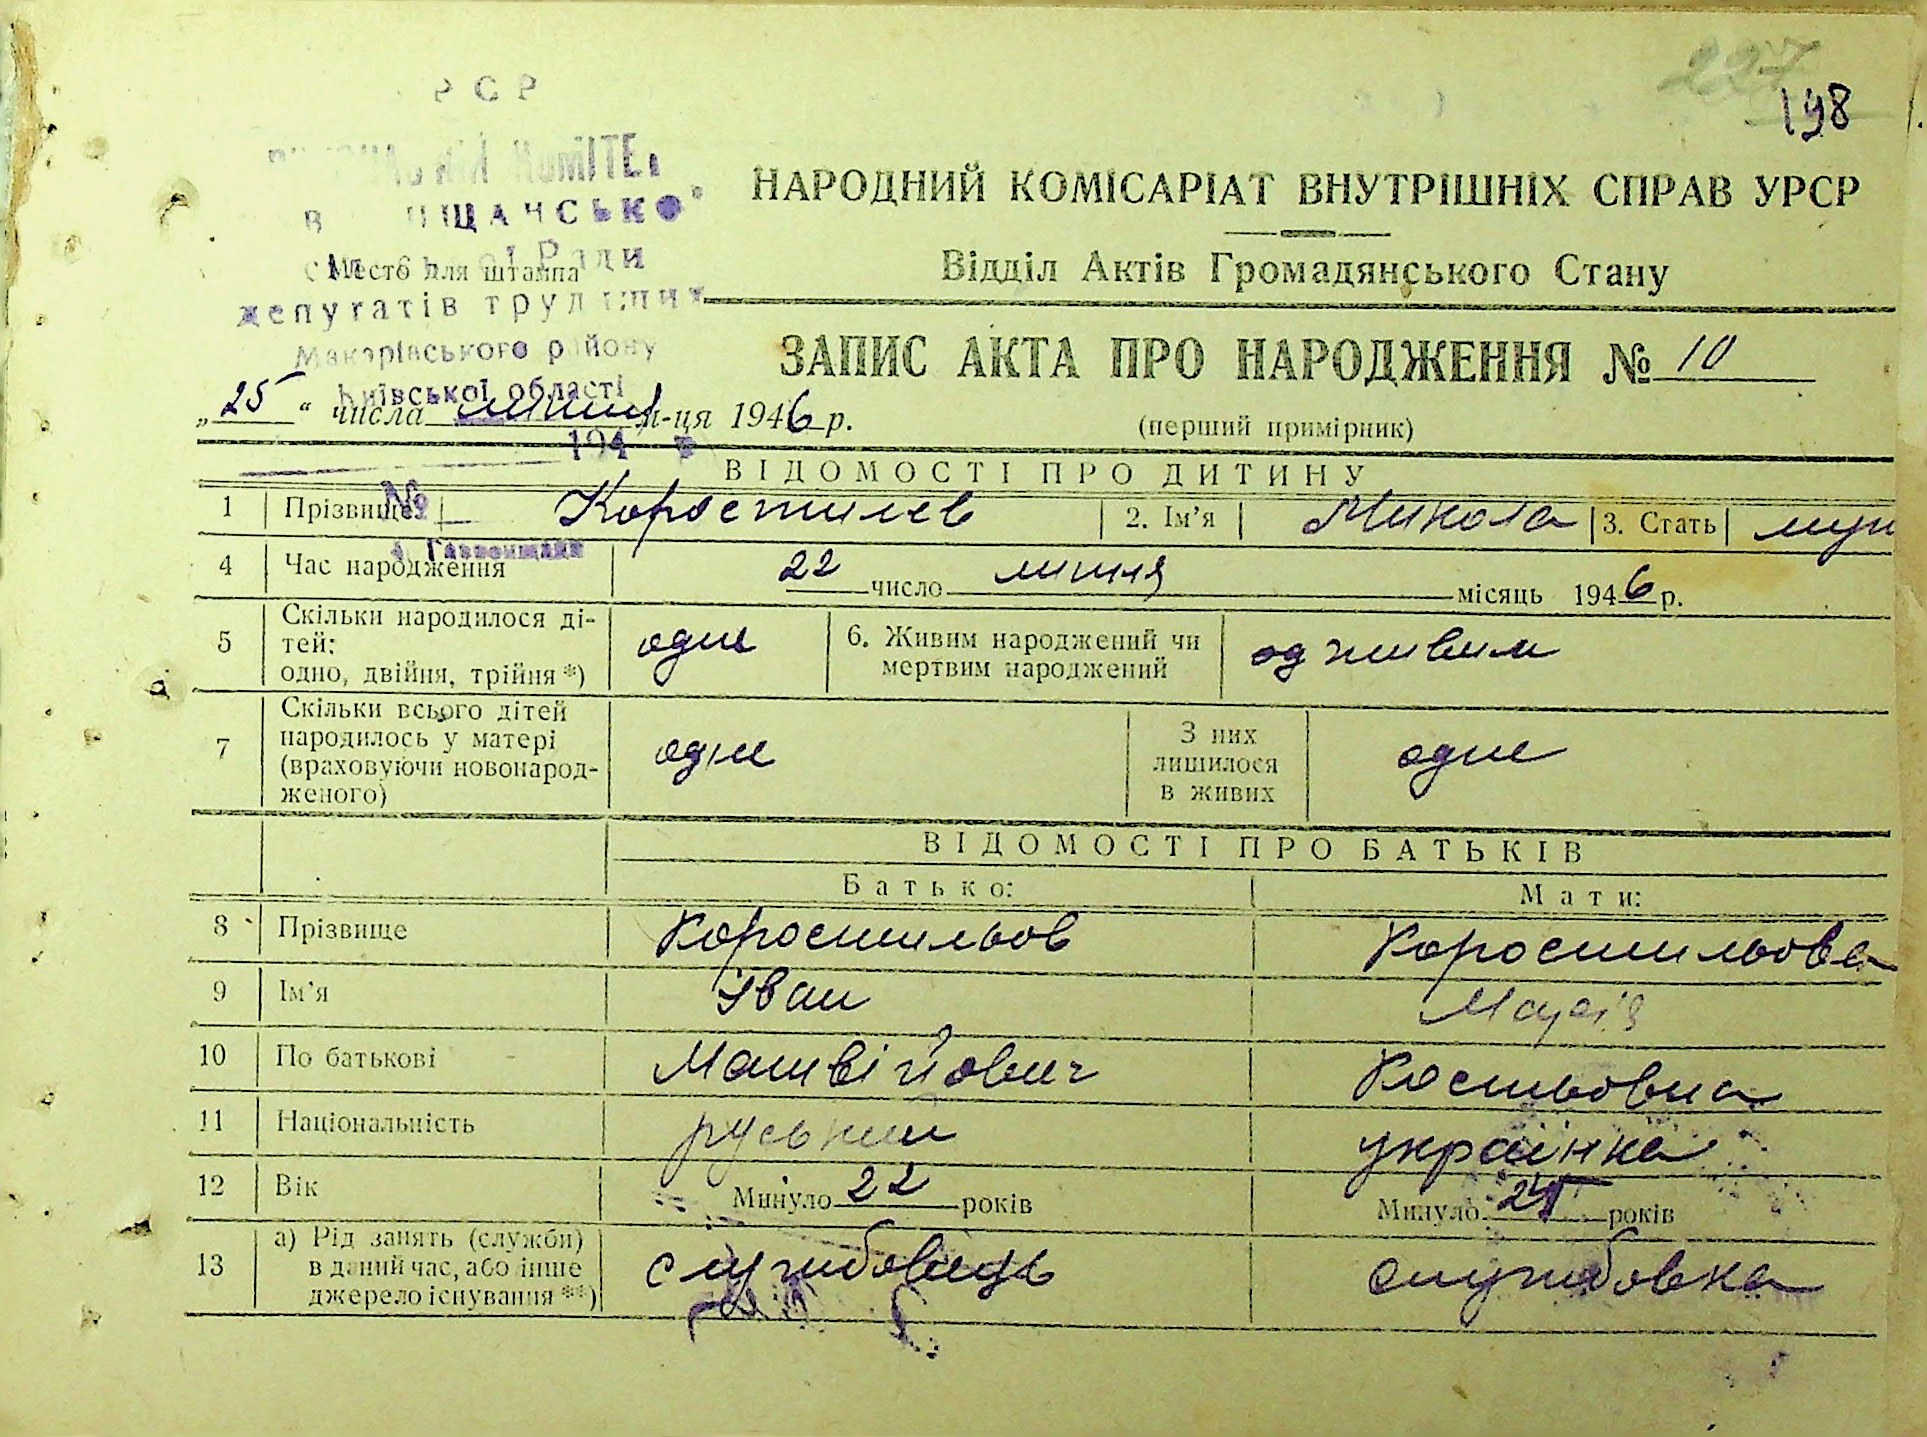 227
198
РСР
КОМІТЕТ
НАРОДНИЙ КОМІСАРІАТ ВНУТРІШНІХ СПРАВ УРСР
Відділ Актів Громадянського Стану
Место для штампа
депутатів трудящих
Макарівського району
Київської області
ЗАПИС АКТА ПРО НАРОДЖЕННЯ № 10
„25“ числа липня м-ця 1946 р.
(перший примірник)
194 р
ВІДОМОСТІ ПРО ДИТИНУ
№
1 Прізвище Коростилев 2. Ім’я Микола 3. Стать муж
4 Час народження 22 число липня місяць 1946 р.
5 Скільки народилося ді-
тей:
одно, двійня, трійня *) одне
6. Живим народжений чи
мертвим народжений живим
7 Скільки всього дітей
народилось у матері
(враховуючи новонарод-
женого) одне
З них
лишилося
в живих одне
ВІДОМОСТІ ПРО БАТЬКІВ
Батько: Мати:
8 Прізвище Коростильов Коростильова
9 Ім’я Іван Марія
10 По батькові Матвійович Костьовна
11 Національність руський українка
12 Вік Минуло 22 років Минуло років
13 а) Рід занять (служби)
в даний час, або інше
джерело існування **) службовець службовка